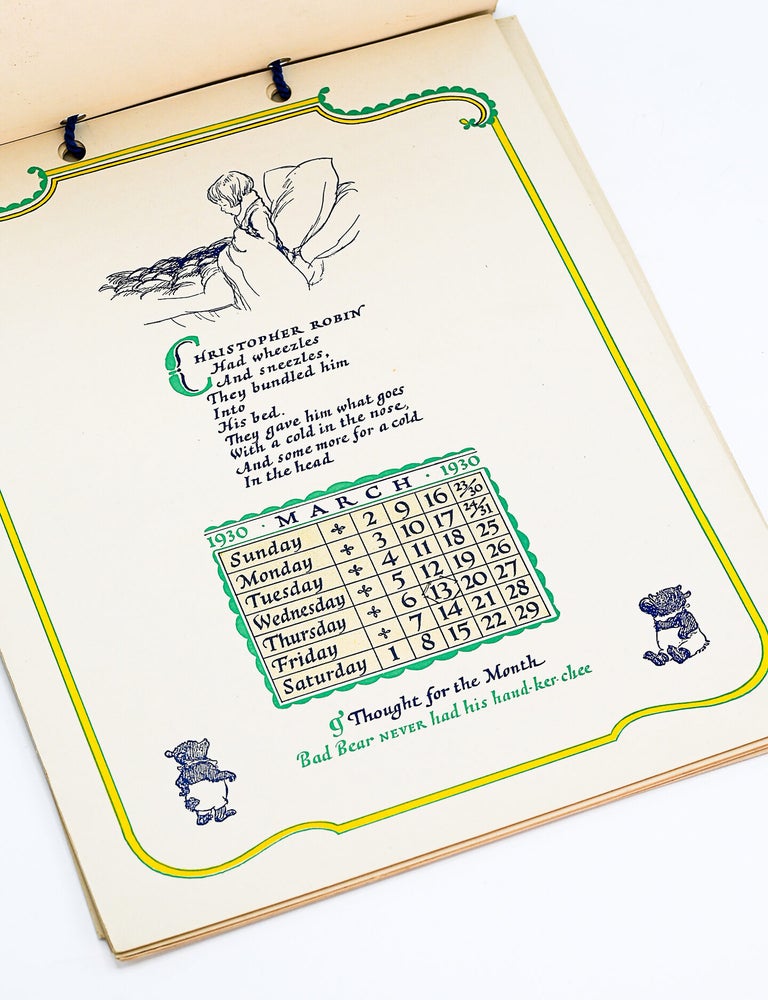 CHRISTOPHER ROBIN
Had wheezles
And sneezles,
They bundled him
Into
His bed.
They gave him what goes
With a cold in the nose,
And some more for a cold
In the head
1930 · MARCH · 1930
Sunday 2 9 16 23/30
Monday 3 10 17 24/31
Tuesday 4 11 18 25
Wednesday 5 12 19 26
Thursday 6 13 20 27
Friday 7 14 21 28
Saturday 1 8 15 22 29
Thought for the Month
Bad Bear NEVER had his hand-ker-chee